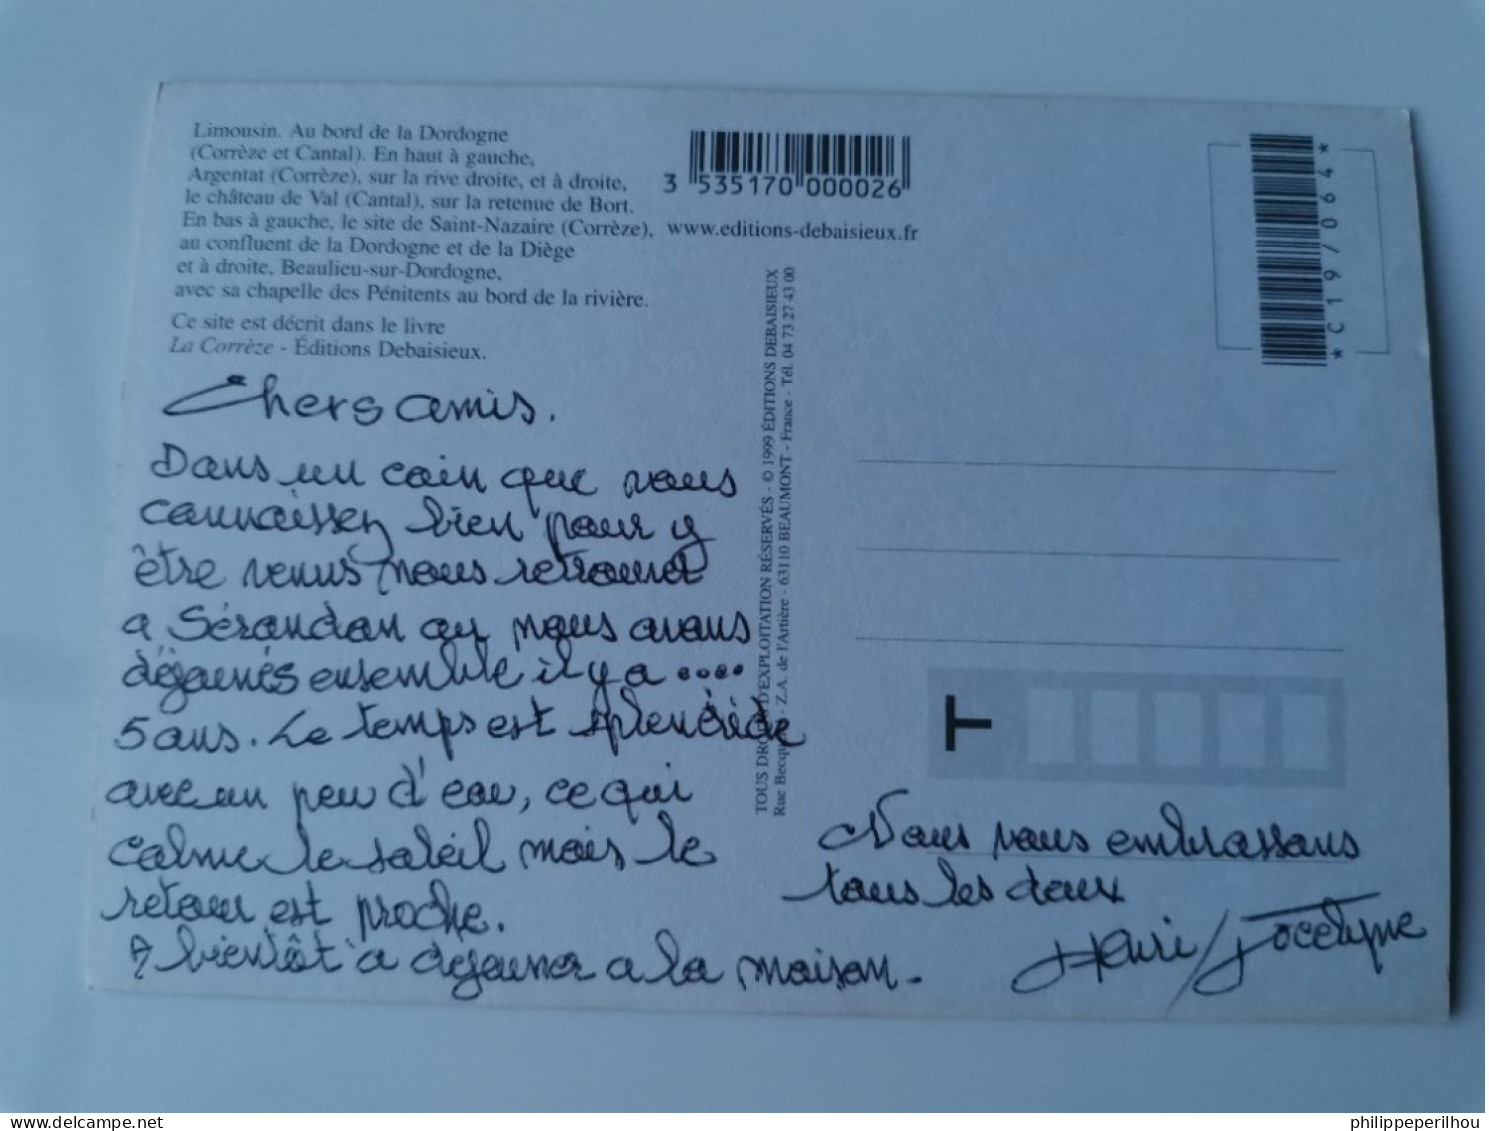 Limousin. Au bord de la Dordogne
(Corrèze et Cantal). En haut à gauche,
Argentat (Corrèze), sur la rive droite, et à droite,
le château de Val (Cantal), sur la retenue de Bort.
En bas à gauche, le site de Saint-Nazaire (Corrèze),
au confluent de la Dordogne et de la Diège
et à droite, Beaulieu-sur-Dordogne,
avec sa chapelle des Pénitents au bord de la rivière.
Ce site est décrit dans le livre
La Corrèze - Éditions Debaisieux.
3 535170 000026
www.editions-debaisieux.fr
*C19/064*
TOUS DROITS D'EXPLOITATION RÉSERVÉS - © 1999 ÉDITIONS DEBAISIEUX
Rue Becquerel - Z.A. de l'Artière - 63110 BEAUMONT - France - Tél. 04 73 27 43 00
Chers amis.
Dans un coin que vous
connaissez bien pour y
être venus nous retrouver
a Sérandon ou nous avons
déjeunés ensemble il y a ....
5 ans. Le temps est splendide
avec un peu d'eau, ce qui
calme le soleil mais le
retour est proche.
A bientôt a dejeuner a la maison.
T
Nous vous embrassons
tous les deux
Henri/Jocelyne
philippeperilhou
delcampe.net